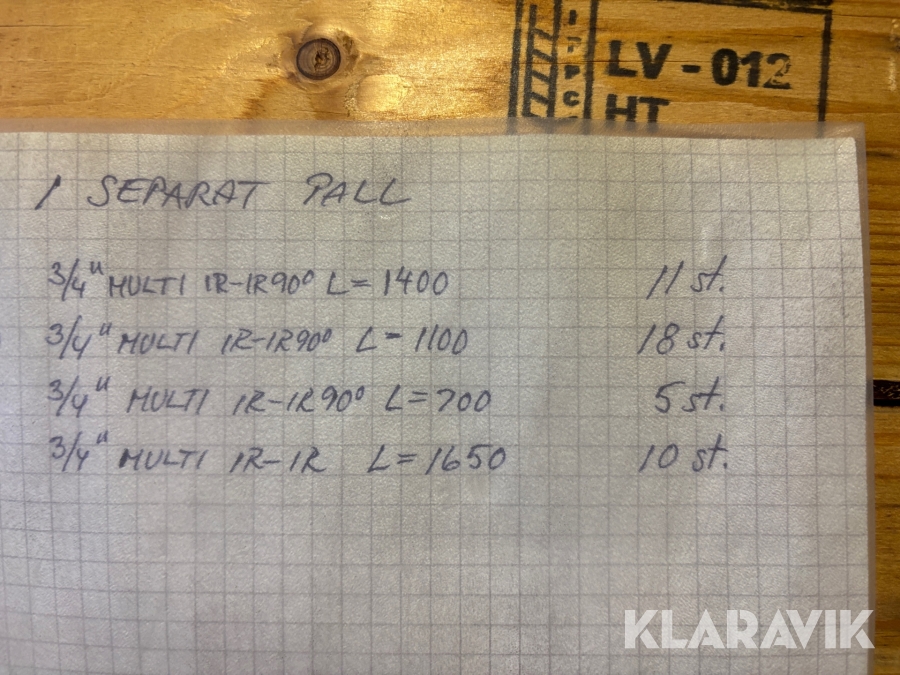 IPPC
LV-012
HT
1 SEPARAT PALL
3/4" MULTI IR-IR90° L=1400 11 st.
3/4" MULTI IR-IR90° L=1100 18 st.
3/4" MULTI IR-IR90° L=700 5 st.
3/4" MULTI IR-IR L=1650 10 st.
KLARAVIK